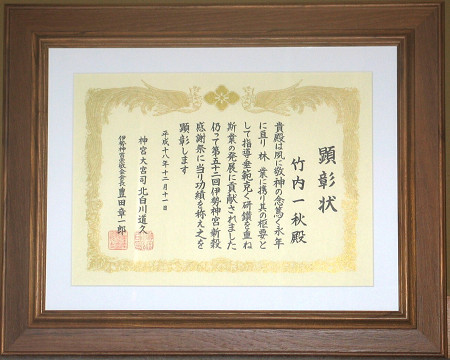 顕彰状
竹内一秋殿
貴殿は夙に敬神の念篤く永年
に亘り林業に携り其の枢要と
して指導垂範克く研鑽を重ね
斯業の発展に貢献されました
仍って第五十二回伊勢神宮新穀
感謝祭に当り功績を称え之を
顕彰します
平成十八年十二月十一日
神宮大宮司北白川道久
伊勢神宮崇敬会会長豊田章一郎